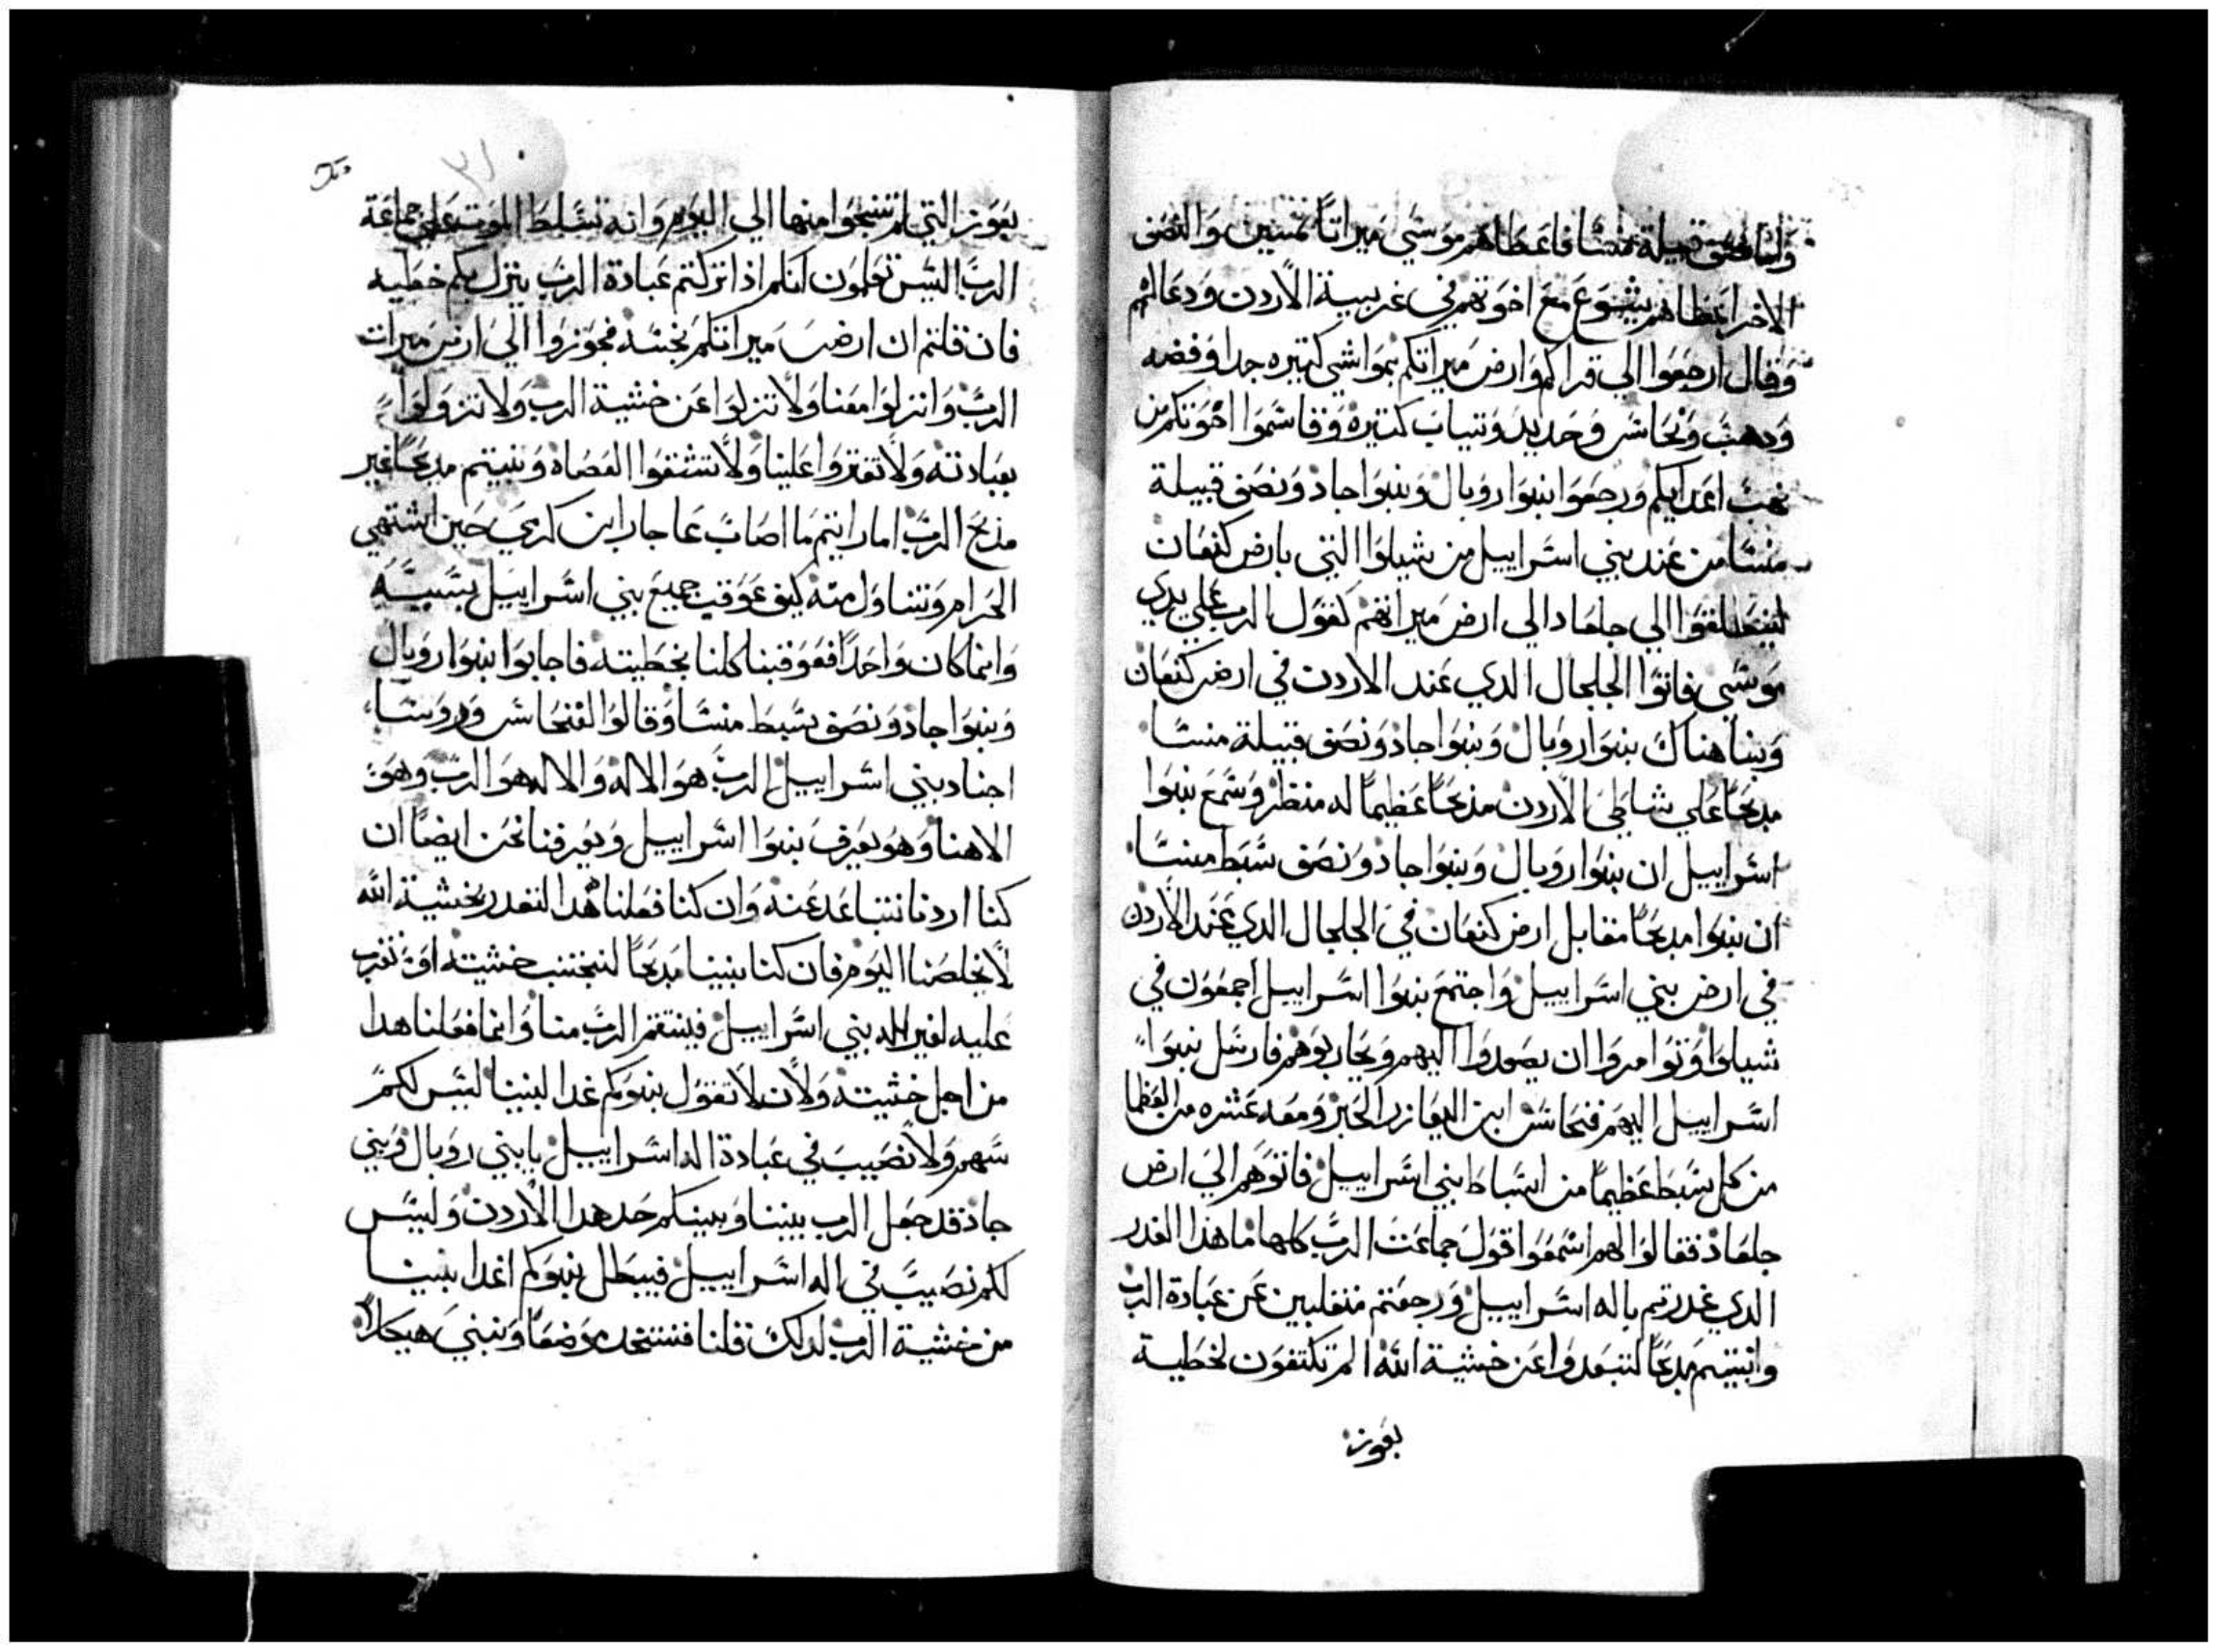 ولنصف قبيلة منسا فاعطاهم موسي ميراتا بمتنين والنصف
الاخر اعطاهم يشوع مع اخوتهم في غربية الاردن ودعا لهم
وقال ارجعوا الي قراكم وارض ميراتكم بمواشي كتيره جدا وفضه
ودهب ونحاس وحديد وتياب كتيره وقاسموا اخوتكم من
نهب اعدايكم ورجعوا بنوا روبال وبنوا جاد ونصف قبيلة
منسا من عند بني اسراييل من شيلوا التي بارض كنعان
لينطلقوا الي جلعاد الي ارض ميراتهم كقول الرب علي يدي
موسي فاتوا الجلجال الدي عند الاردن في ارض كنعان
وبنا هناك بنوا روبال وبنوا جاد ونصف قبيلة منسا
مدبحا علي شاطي الاردن مدبحا عظيما له منظر وسمع بنوا
اسراييل ان بنوا روبال وبنوا جاد ونصف سبط منسا
ان بنوا مدبحا مقابل ارض كنعان في الجلجال الدي عند الاردن
في ارض بني اسراييل واجتمع بنوا اسراييل اجمعون في
شيلوا وتوامروا ان يصعدوا اليهم ويحاربوهم فارسل بنوا
اسراييل اليهم فنحاس ابن اليعازر الحبر ومعه عشره من العظما
من كل سبط عظيما من اسباط بني اسراييل فاتوهم الي ارض
جلعاد فقالوا لهم اسمعوا قول جماعت الرب كلها ما هدا الغدر
الدي غدرتم باله اسراييل ورجعتم منقلبين عن عبادة الرب
وابنيتم مدبحا لتبعدوا عن خشية الله الم تكتفون لخطية
بعور
بعور التي لم تنجوا منها الي اليوم وانه تسلط الموت علي جماعة
الرب اليس تعلمون انكم ادا تركتم عبادة الرب ينزل بكم خطيه
فان قلتم ان ارض ميراتكم نجسه فجوزوا الي ارض ميرات
الرب وانزلوا معنا ولا تزلوا عن خشية الرب ولا تزولوا
بعبادته ولا تفتروا علينا ولا تشقوا العصاه وبنيتم مدبحا غير
مدبح الرب اما رايتم ما اصاب عاجار ابن كرمي حين اشتهي
الحرام وتناول منه كيف عوقب جميع بني اسراييل بسببه
وانما كان واحدا فعوقبنا كلنا بخطيته فاجابوا بنوا روبال
وبنوا جاد ونصف سبط منسا وقالوا لفنحاس وروسا
اجناد بني اسراييل الرب هو الاله والاله هو الرب وهو
الاهنا وهو يعرف بنوا اسراييل ويعرفنا نحن ايضا ان
كنا اردنا نتباعد عنه وان كنا فعلنا هدا لنغدر بخشية الله
لا يخلصنا اليوم فان كنا بنينا مدبحا لنجتنب خشيته او نقرب
عليه لغير اله بني اسراييل فينتقم الرب منا وانما فعلنا هدا
من اجل خشيته ولان لا تقول بنوكم غدا لبنينا ليس لكم
سهم ولا نصيب في عبادة اله اسراييل يا بني روبال وبني
جاد قد جعل الرب بيننا وبينكم حد هدا الاردن وليس
لكم نصيب في اله اسراييل فيبطل بنوكم اغدا بنينا
من خشية الرب لدلك قلنا فنتخد موضعا ونبني هيكلا